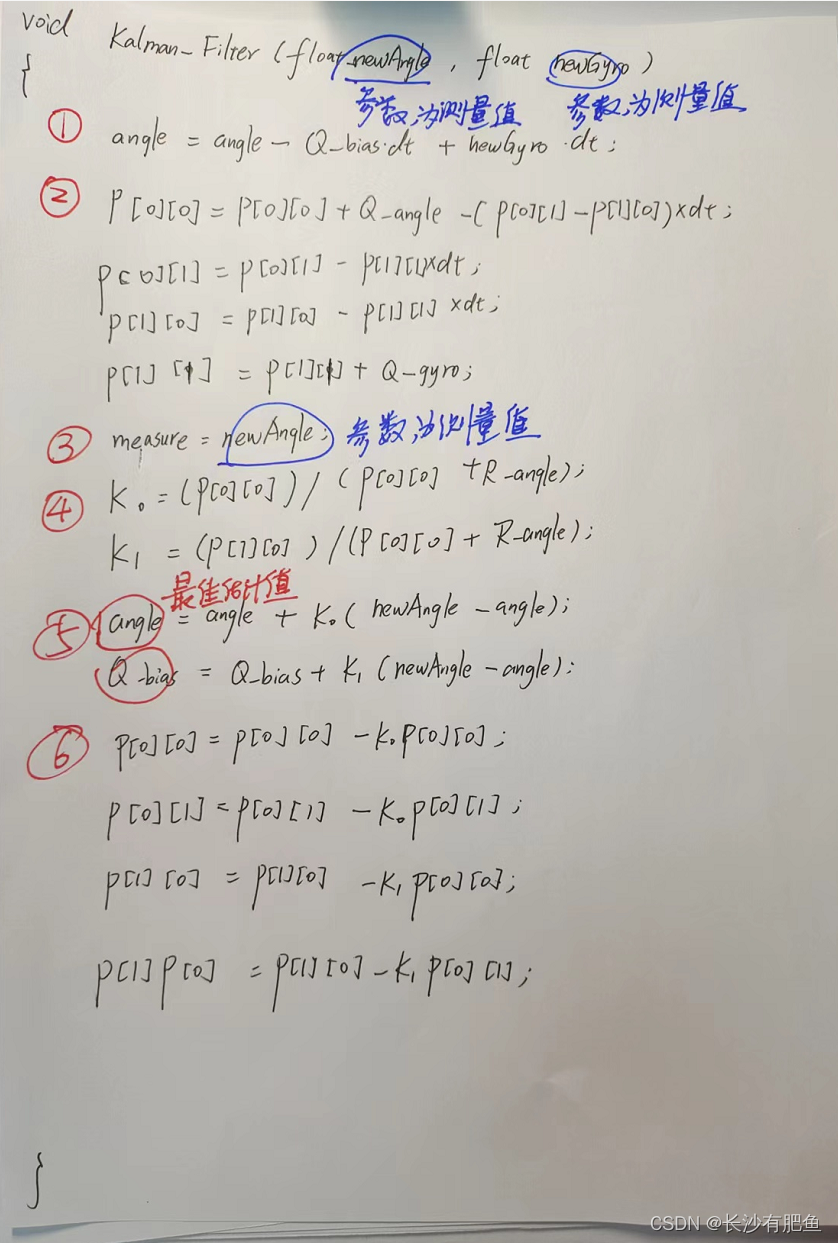 void
Kalman_Filter (float newAngle , float newGyro )
{
参数为测量值 参数为测量值
① angle = angle - Q_bias·dt + newGyro ·dt;
② P[0][0] = P[0][0] + Q_angle -( P[0][1] - P[1][0] )×dt;
P[0][1] = P[0][1] - P[1][1]×dt;
P[1][0] = P[1][0] - P[1][1] ×dt;
P[1][1] = P[1][1] + Q_gyro;
③ measure = newAngle; 参数为测量值
④ K0 = (P[0][0] ) / ( P[0][0] + R_angle);
K1 = (P[1][0] ) / (P[0][0] + R_angle);
最佳估计值
⑤ angle = angle + K0 ( newAngle - angle);
Q_bias = Q_bias + K1 (newAngle - angle);
⑥ P[0][0] = P[0][0] - K0 P[0][0] ;
P[0][1] = P[0][1] - K0 P[0][1] ;
P[1][0] = P[1][0] - K1 P[0][0];
P[1]P[0] = P[1][0] - K1 P[0][1] ;
}
CSDN @长沙有肥鱼